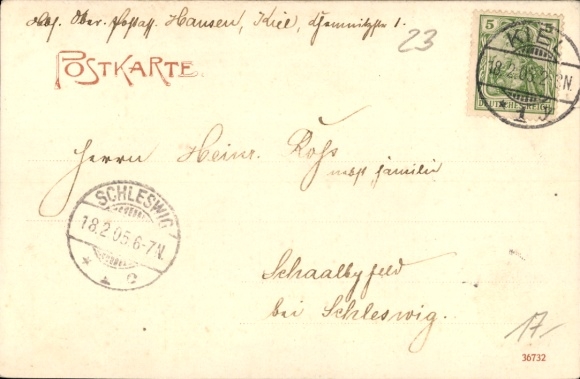 Abs. Ober-Postass. Hansen, Kiel, Chemnitzstr 1.
23
POSTKARTE.
5
DEUTSCHES REICH
KIEL
18.2.05.2-3N.
* 1 y
Herrn Heinr. Rohs
nebst familie
SCHLESWIG
18.2.05.6-7N.
* 1 c
Schaalbyfeld
bei Schleswig.
17.-
36732